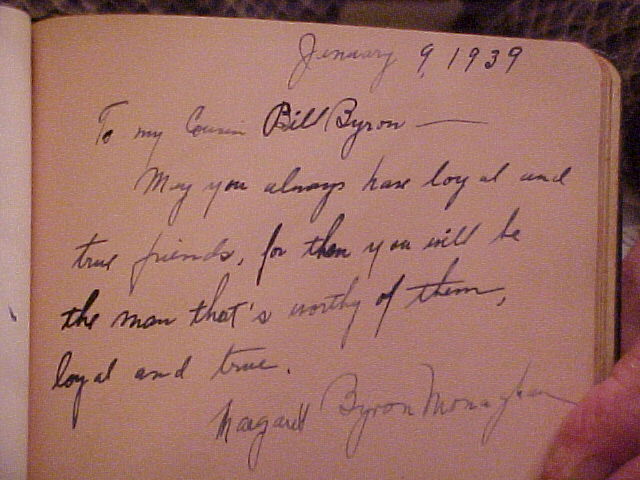 January 9, 1939
To my Cousin Bill Byron —
May you always have loyal and
true friends, for then you will be
the man that's worthy of them,
loyal and true.
Margaret Byron Monaghan